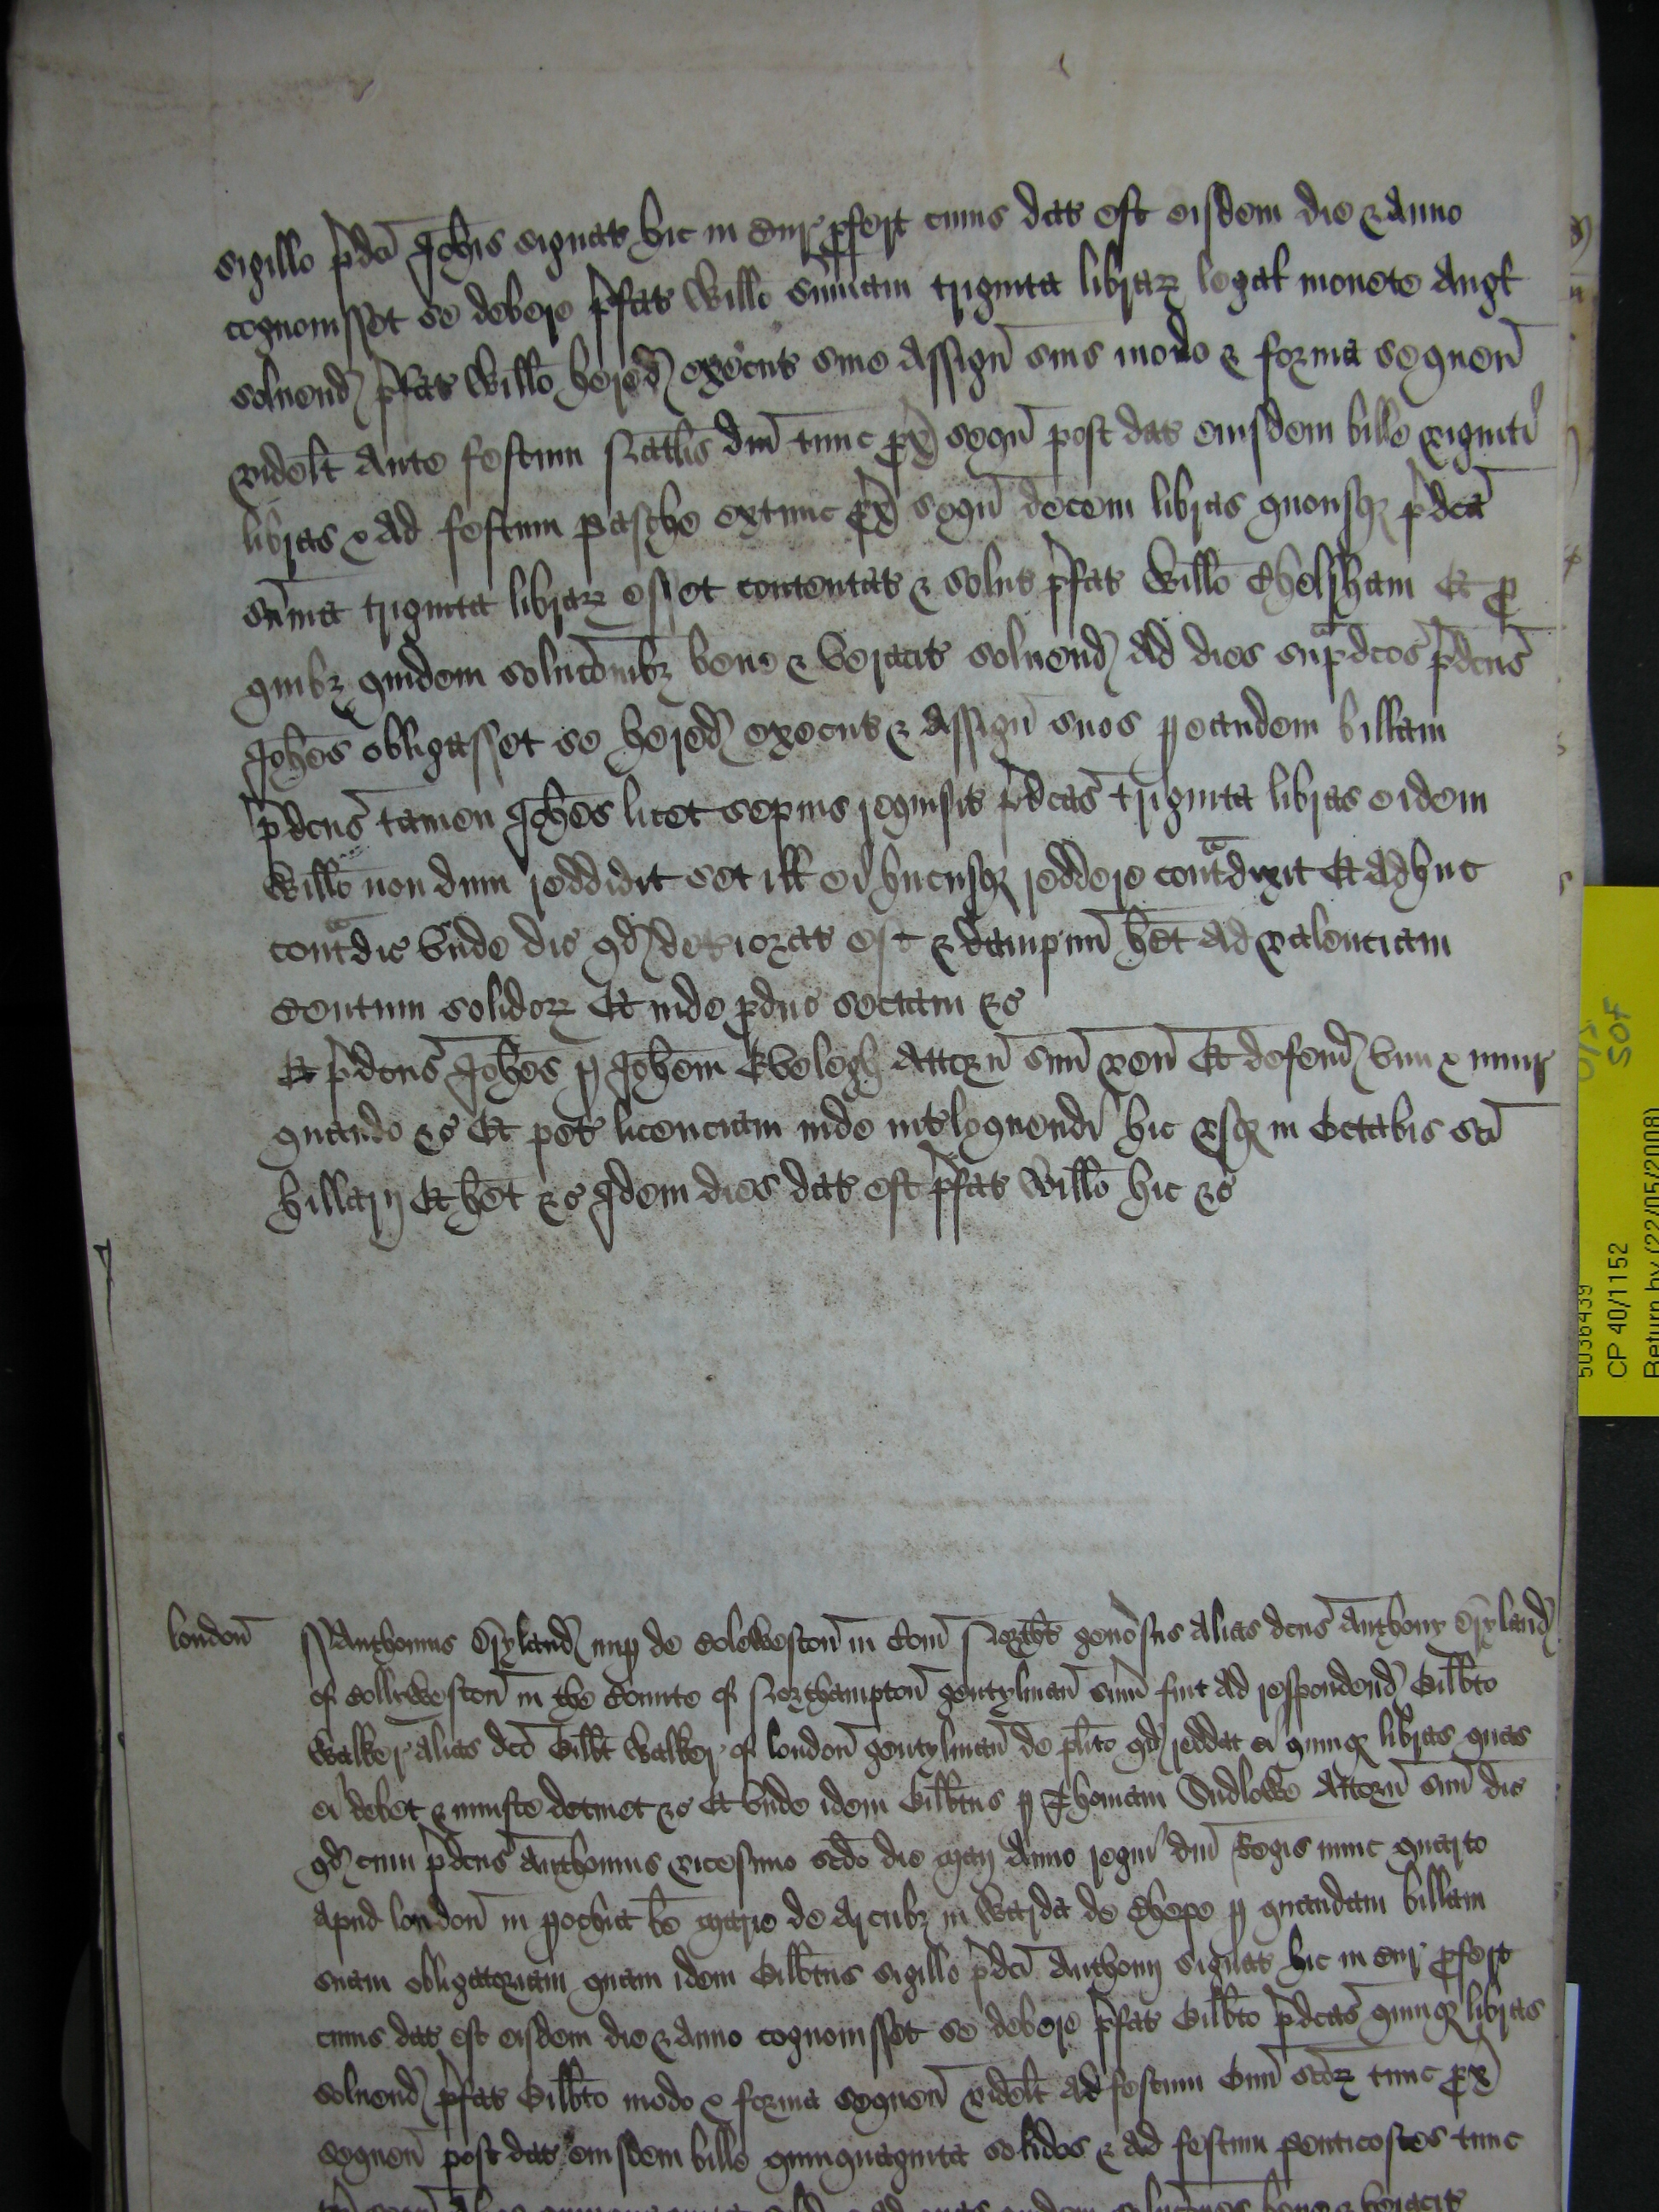 sigillo p̄dc̄i Joh̄is signat' hic in Cur' p̱fert cuius dat' est eisdem die & anno
cognovisset se debere p̄fat' Will̄o sūmam triginta librar̄ legal' monete Angl'
solvend' p̄fat' Will̄o hered' execut' sive assign̄ suis modo & forma sequen̄
videl̄t ante festum Natal̄is dn̄i tunc px̄ seqū post dat' eiusdem bille viginti
libras & ad festum pasche extunc px̄ seqū decem libras quousq̄ p̄dcā
sūma triginta librar̄ esset contentat' & solut' p̄fat' Will̄o Chelsham Et p
quibȝ quidem soluc̄onibȝ bene & veracit' solvend' ad dies sup̄dc̄os p̄dcūs
Joh̄es obligasset se hered' execut' & assign̄ suos p eandem billam
p̄dcūs tamen Joh̄es licet sepius requisit' p̄dcās triginta libras eidem
Will̄o nondum reddidit set ill' ei hucusq̄ reddere cont̄dixit Et adhuc
cont̄dic' Unde dic' qd' deteriorat' est & dampnū h̄et ad valenciam
Centum solidor̄ Et inde p̱duc' sectam &c
Et p̄dcūs Joh̄es p Joh̄em Eveleigh Attorn̄ suū ven̄ Et defend' vim & iniur'
quando &c Et pet' licenciam inde int'loquendi hic usq̄ in Octabis sc̄i
hillarij Et h̄et &c Idem dies dat' est p̄fat' Will̄o hic &c
london̄ Anthonius Ryland' nup de Coleweston̄ in Com̄ North̄t gen̄osus alias dcūs Anthony Ryland'
of Colliweston̄ in the Counte of Northampton̄ gentylman̄ sum̄ fuit ad respondend' Gilb̄to
Walker alias dc̄o Gilb̄t Walker of london̄ gentylman̄ de pl̄ito qd' reddat ei quinq̄ libras quas
ei debet & iniuste detinet &c Et unde idem Gilb̄tus p Thomam Dudlowe Attorn̄ suū dic'
qd' cum p̄dcūs Anthonius vicesimo sc̄do die maij Anno regni dn̄i Regis nunc quarto
apud london̄ in pochia b̄e marie de Arcubȝ in Warda de Chepe p quandam billam
suam obligatoriam quam idem Gilb̄tus sigillo p̄dc̄i Anthonij signat' hic in Cur' p̱fert
cuius dat' est eisdem die & anno cognovisset se debere p̄fat' Gilb̄to p̄dcās quinq̄ libras
solvend' p̄fat' Gilb̄to modo & forma sequen̄ videl̄t ad festum Om̄i sc̄or̄ tunc px̄
sequen̄ post dat' eiusdem bille quinquaginta solidos & ad festum penticostes tunc
SOF
5036439
CP 40/1152
Return by (22/05/2008)